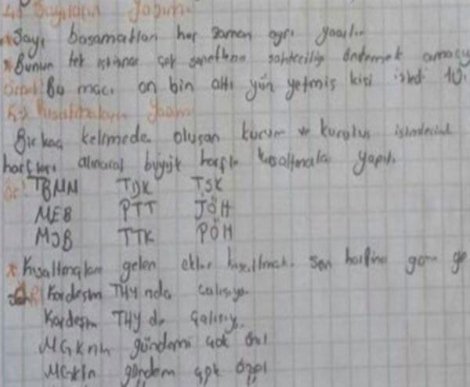 4) Sayıların Yazımı
* Sayı basamakları her zaman ayrı yazılır.
* Bunun tek istisnası çek senetlerin sahteciliği önlemek amacı
Örnek: Bu maçı on bin altı yüz yetmiş kişi izledi
5) Kısaltmaların Yazımı
Birkaç kelimede oluşan kurum ve kuruluş isimlerinin
harfleri alınarak büyük harfle kısaltmalar yapılır.
Ör: TBMM TDK TSK
MEB PTT JÖH
MSB TTK PÖH
* Kısaltmaları gelen ekler kısaltmanın son harfine göre ge
Kardeşim THY'nda çalışıyo.
Kardeşim THY'de çalışıyo.
MGK'nın gündemi çok özel
MGK'ın gündem çok özel